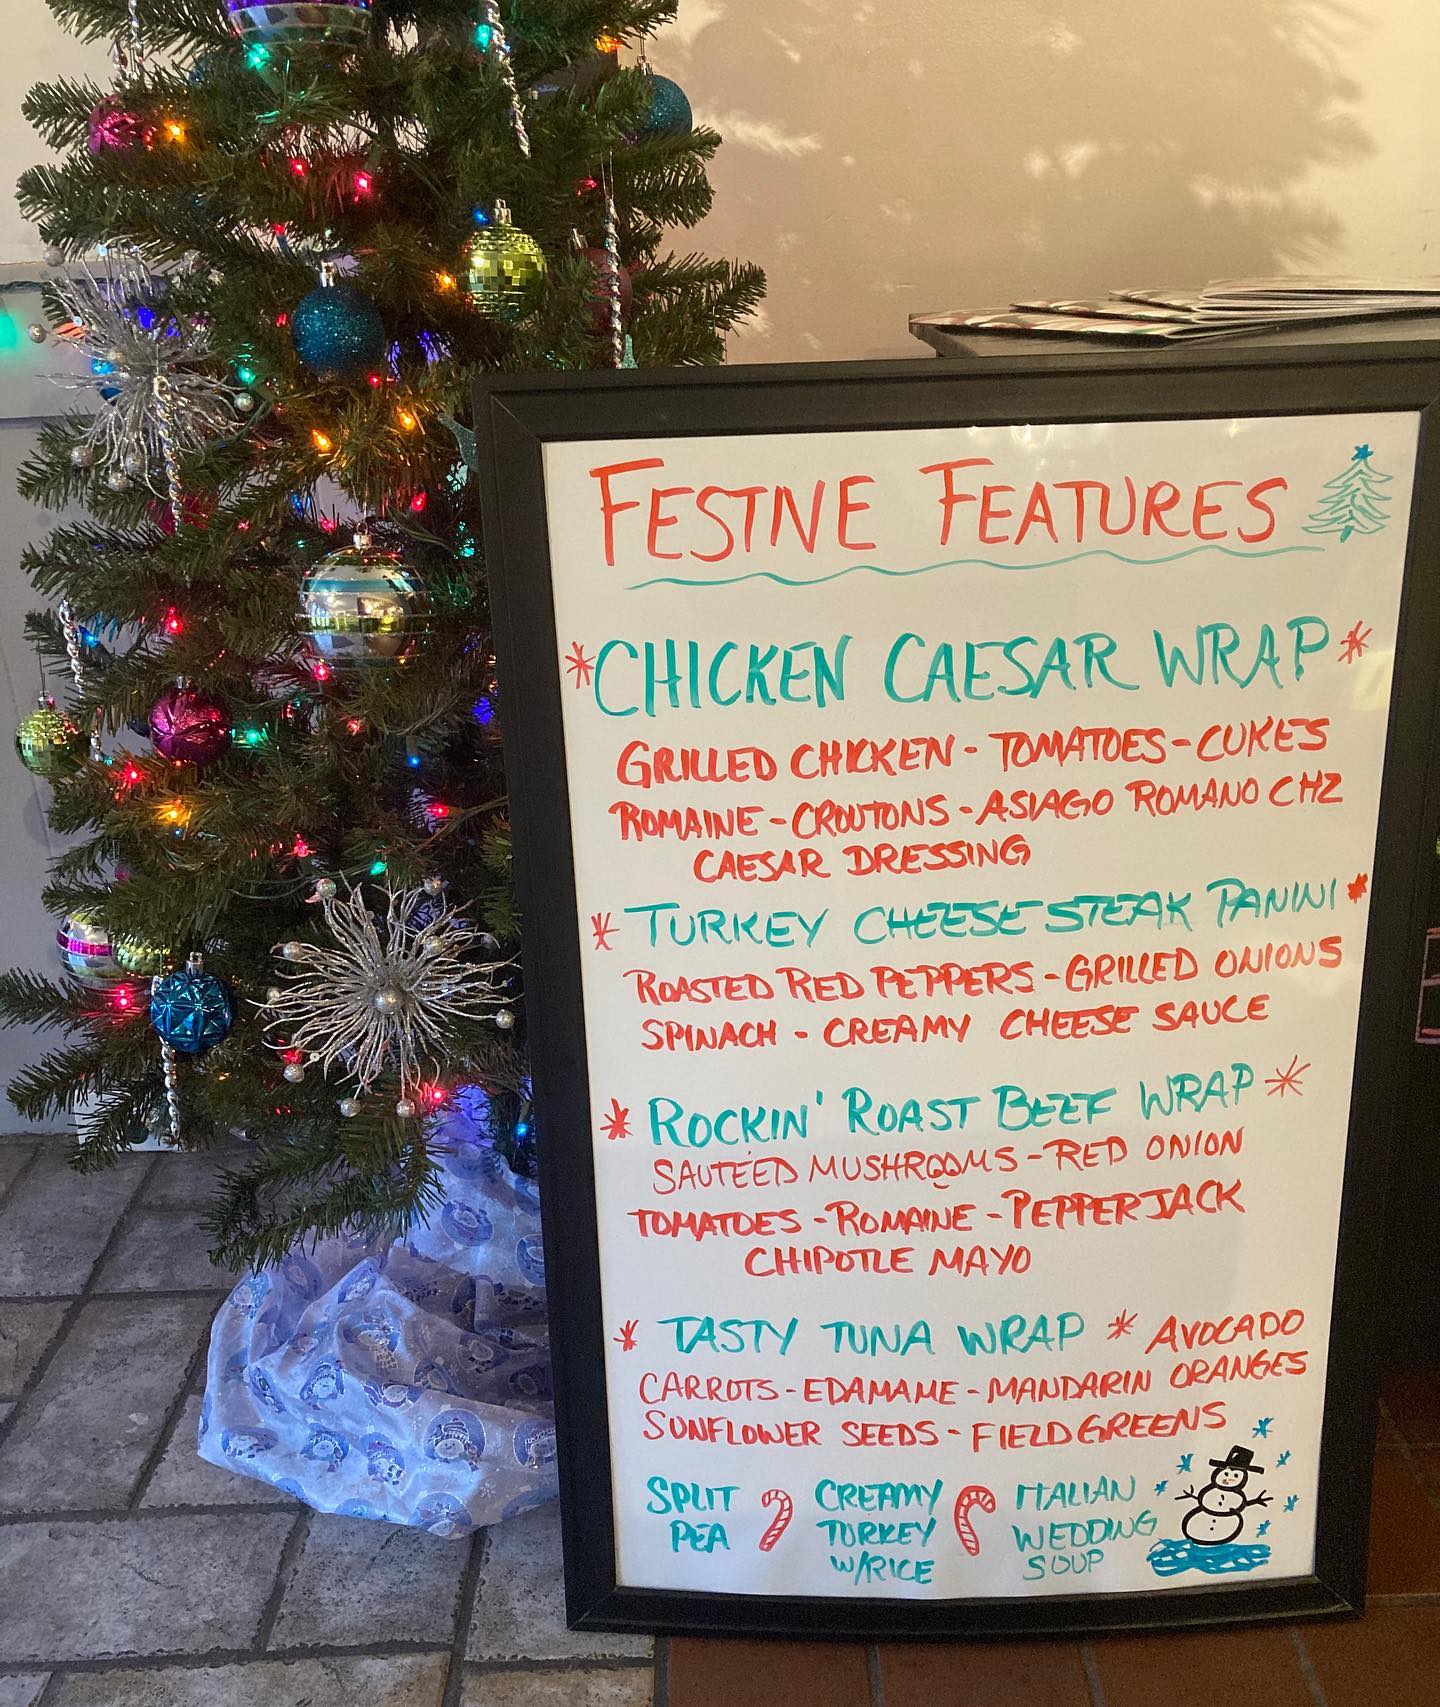 FESTIVE FEATURES
*CHICKEN CAESAR WRAP*
GRILLED CHICKEN - TOMATOES - CUKES
ROMAINE - CROUTONS - ASIAGO ROMANO CHZ
CAESAR DRESSING
* TURKEY CHEESESTEAK PANINI *
ROASTED RED PEPPERS - GRILLED ONIONS
SPINACH - CREAMY CHEESE SAUCE
* ROCKIN' ROAST BEEF WRAP *
SAUTÉED MUSHROOMS - RED ONION
TOMATOES - ROMAINE - PEPPERJACK
CHIPOTLE MAYO
* TASTY TUNA WRAP * AVOCADO
CARROTS - EDAMAME - MANDARIN ORANGES
SUNFLOWER SEEDS - FIELD GREENS
SPLIT
PEA
CREAMY
TURKEY
W/RICE
ITALIAN
WEDDING
SOUP